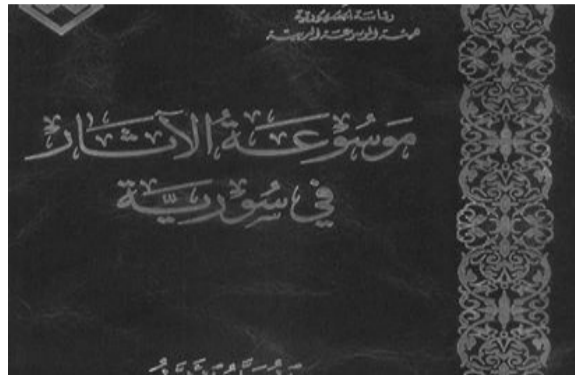 رئاسة الجمهورية
هيئة الموسوعة العربية
مَوسُوعَةُ الآثَار
في سُوريَّة